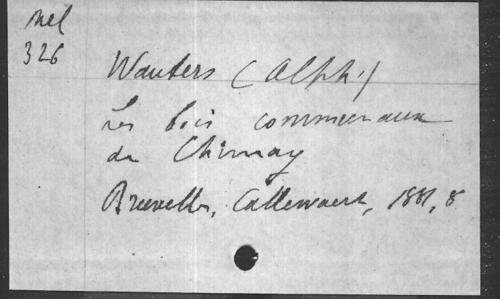 Mel
326
Wauters (Alph.)
Les bois communaux
de Chimay
Bruxelles, Callewaert, 1881, 8